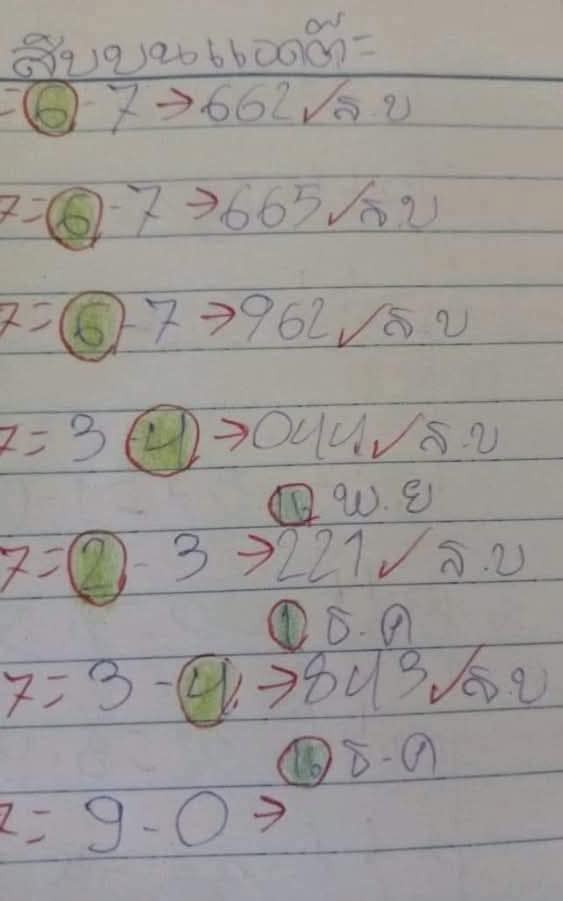 สิบบนแอดต๊ะ
= 6 - 7 → 662 ✓ ส.บ
7 = 6 - 7 → 665 ✓ ส.บ
7 = 6 - 7 → 962 ✓ ส.บ
7 = 3 - 4 → 044 ✓ ส.บ
16 พ.ย
7 = 2 - 3 → 221 ✓ ส.บ
1 ธ.ค
7 = 3 - 4 → 843 ✓ ส.บ
16 ธ-ค
= 9 - 0 →